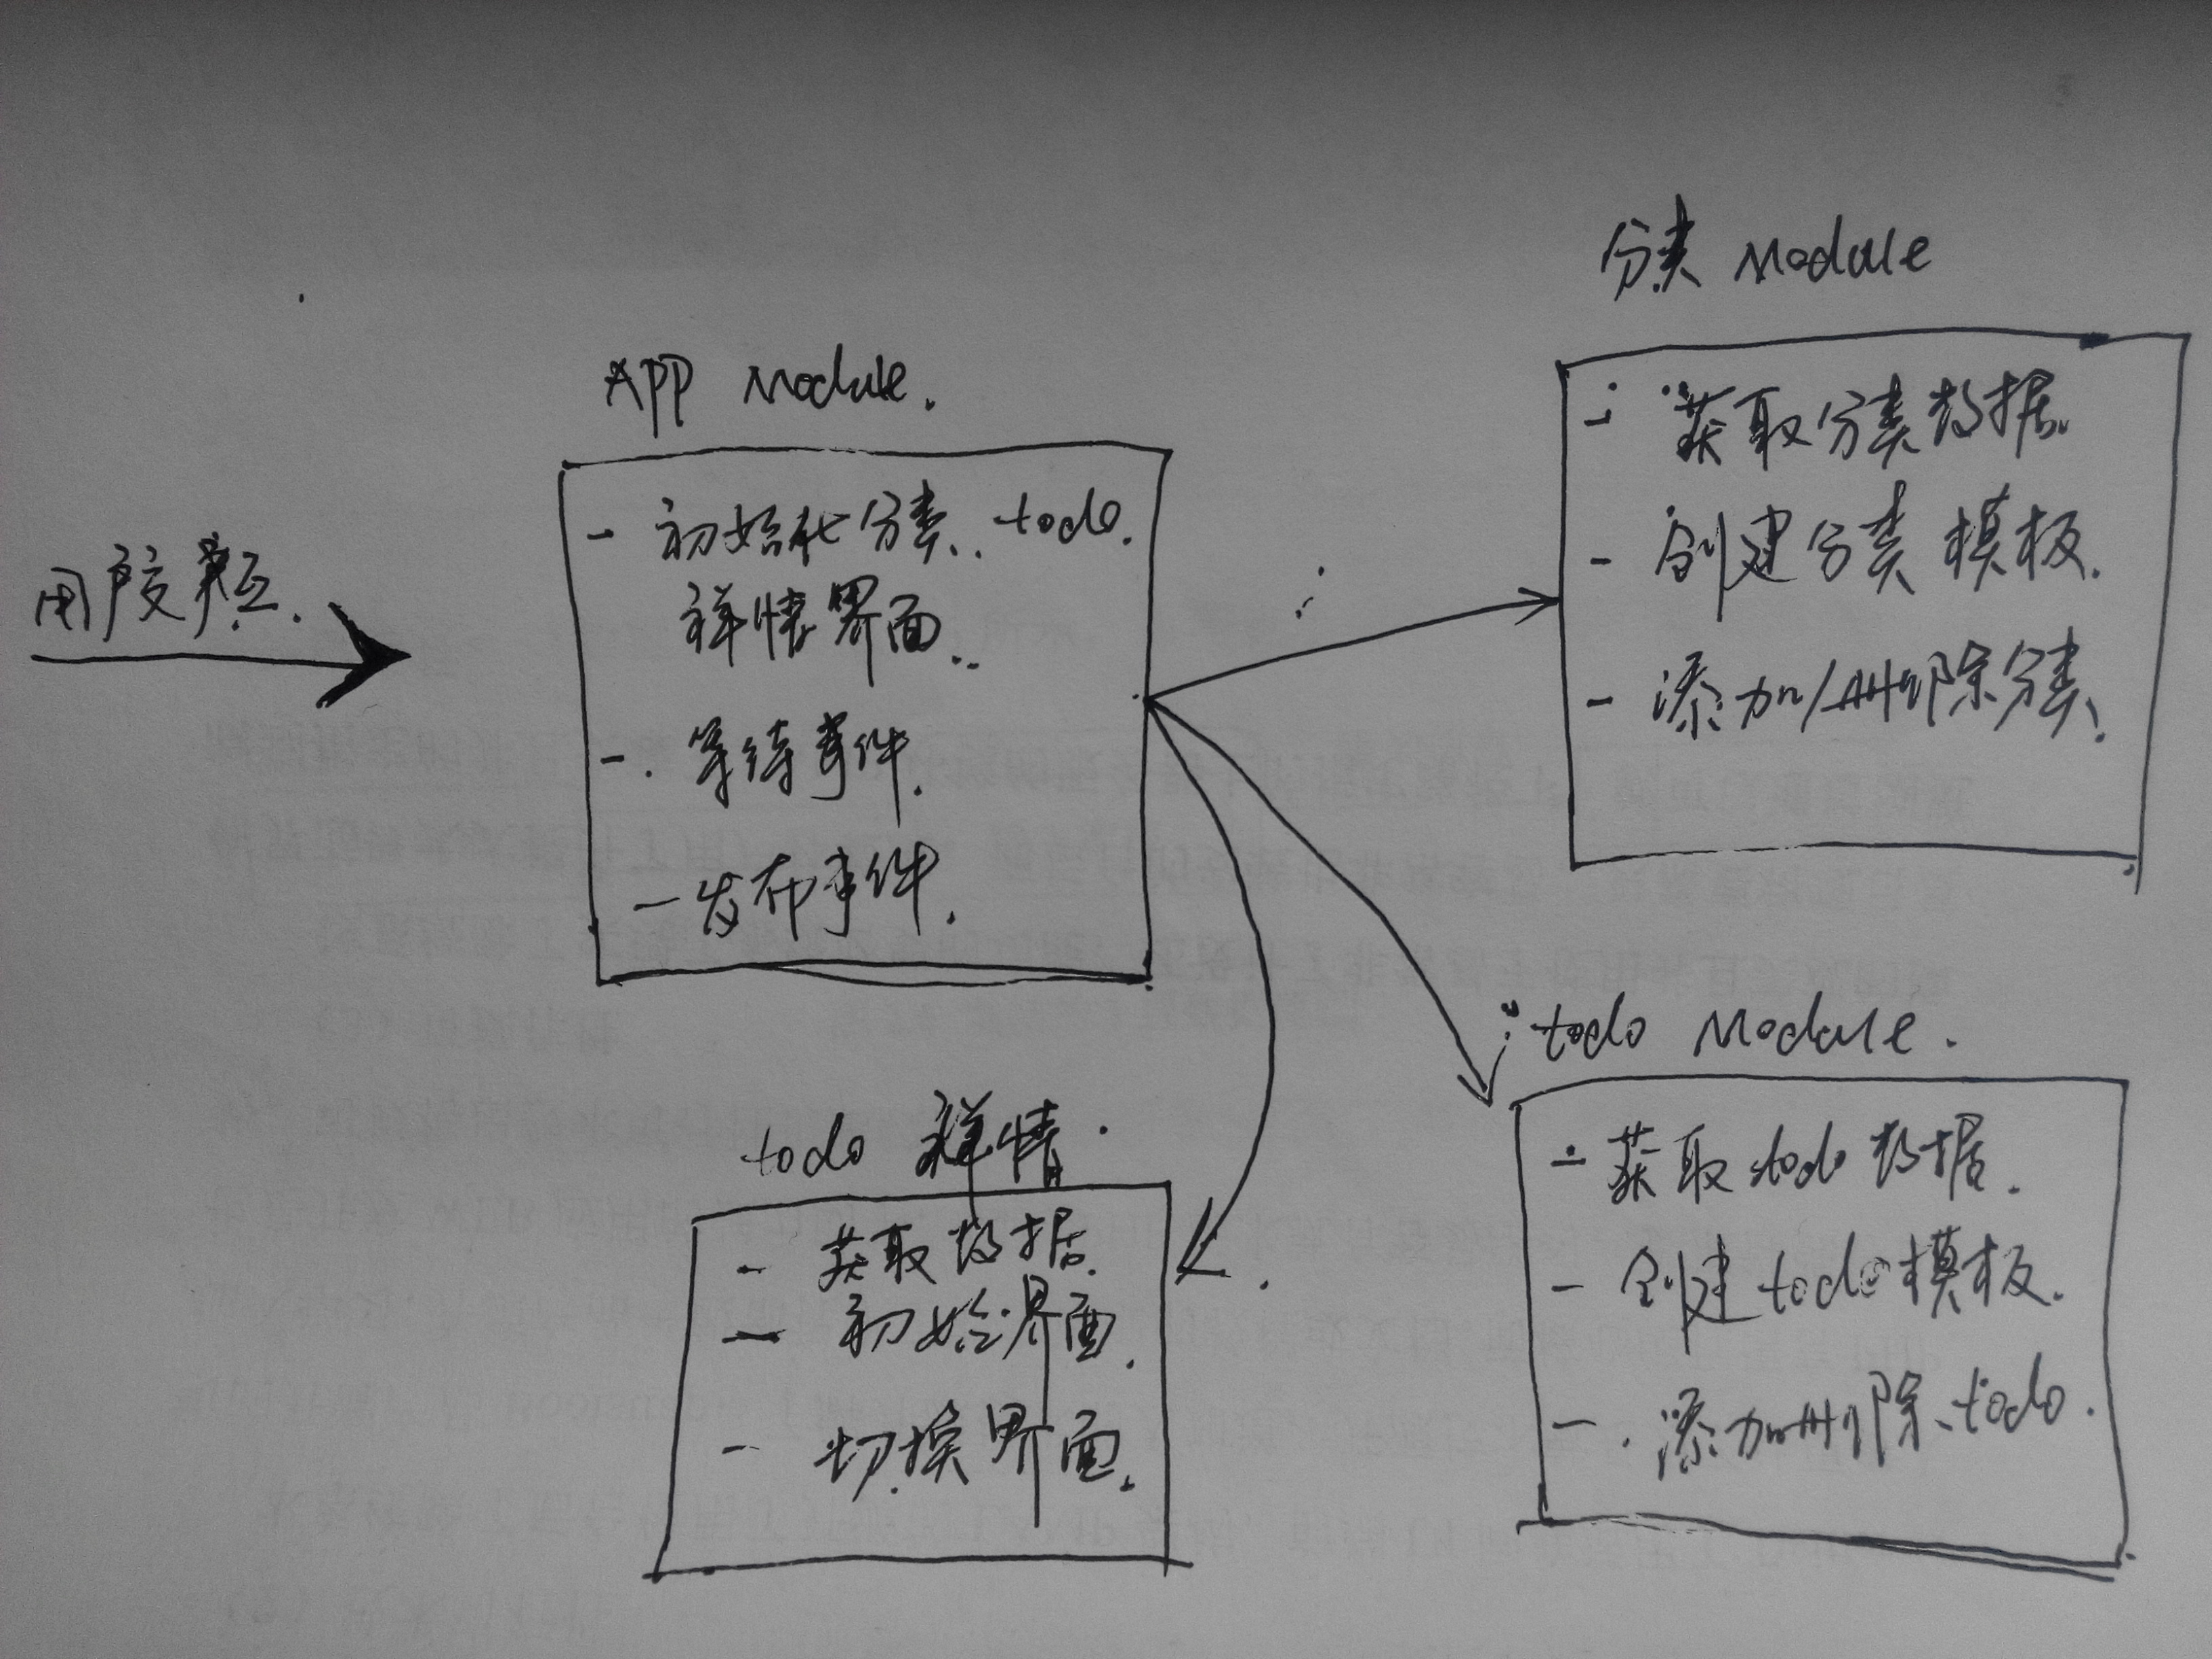 分类 Module
APP Module.
- 获取分类数据.
- 初始化分类、todo.
详情界面.
- 创建分类模板.
用户交互.
- 添加/删除分类.
- 等待事件.
- 发布事件.
todo Module.
todo 详情.
- 获取todo数据.
- 获取数据.
- 创建todo模板.
- 初始界面.
- 添加删除todo.
- 切换界面.